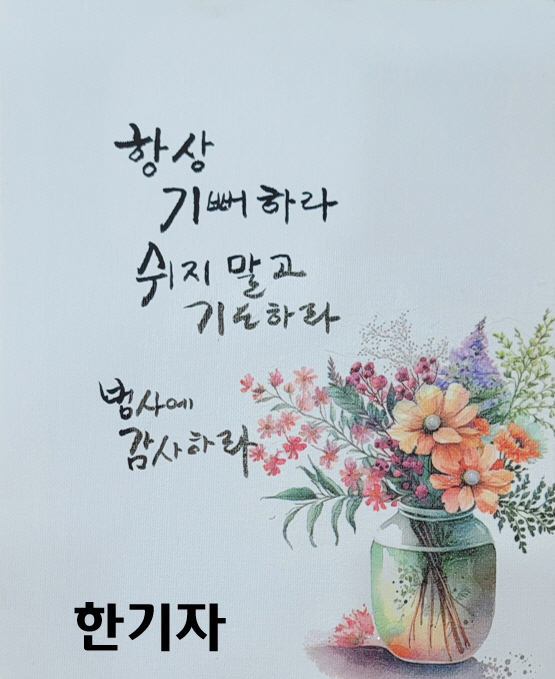 항상
기뻐하라
쉬지 말고
기도하라
범사에
감사하라
한기자